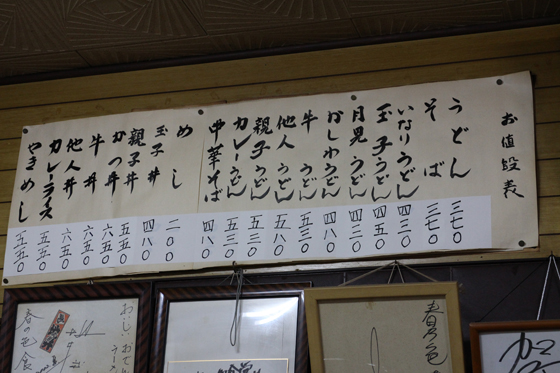 お値段表
うどん 三七〇
そば 三七〇
いなりうどん 四三〇
玉子うどん 四五〇
月見うどん 四三〇
かしわうどん 四八〇
牛うどん 五三〇
他人うどん 五八〇
親子うどん 五三〇
カレーうどん 五三〇
中華そば 四八〇
めし 二〇〇
玉子丼 四八〇
親子丼 五五〇
かつ丼 六五〇
牛丼 六五〇
他人丼 六五〇
カレーライス 五五〇
やきめし 五五〇
春乃色
おいしいおでん
春の色食